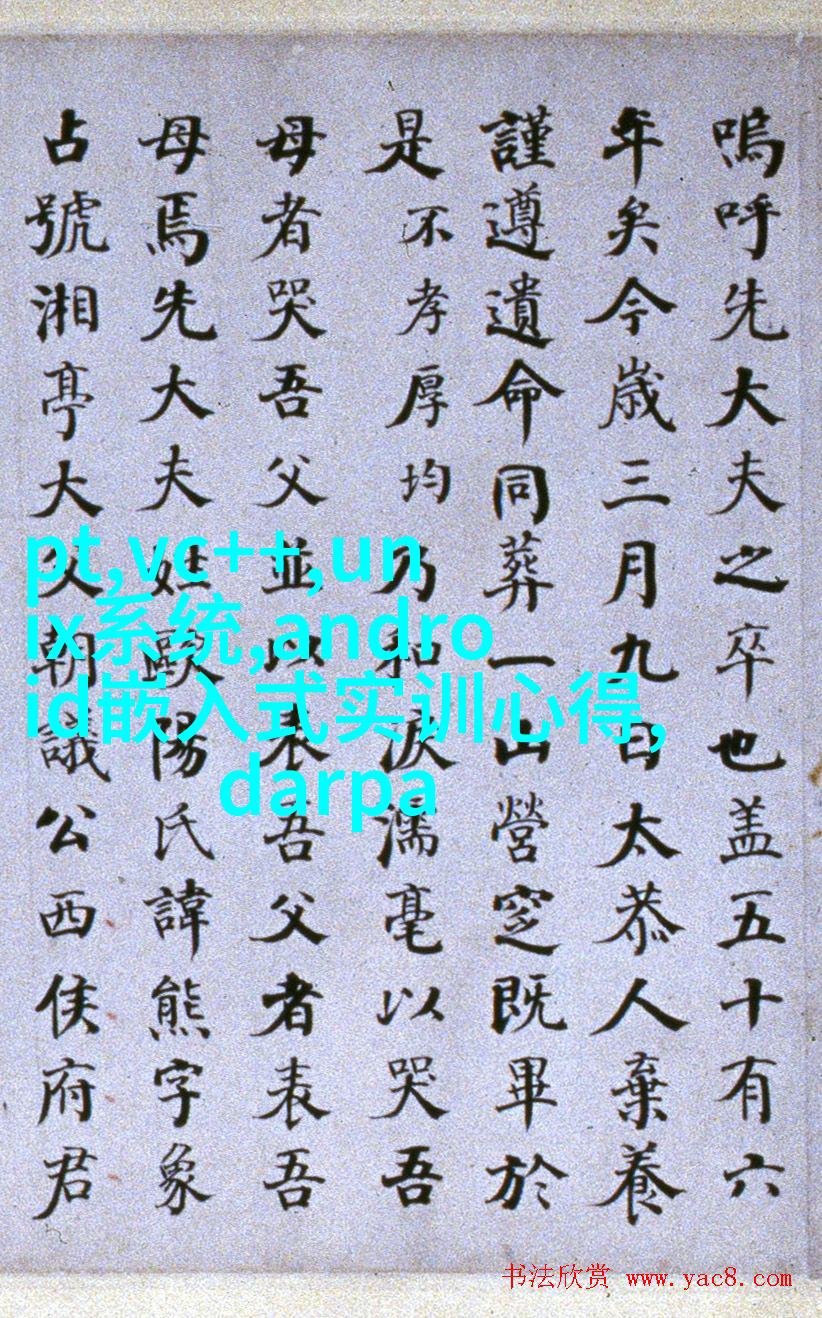 嗚呼先大夫之卒也盖五十有六
年矣今歲三月九日太恭人棄養
謹遵遺命同葬一山營窆既畢於
是不孝厚均乃和淚濡毫以哭吾
母者哭吾父並以表吾父者表吾
母焉先大夫姓歐陽氏諱熊字象
占號湘亭大父朝議公西侯府君
pt,vc++,un
ix系统,andro
id嵌入式实训心得,
darpa
书法欣赏 www.yac8.com